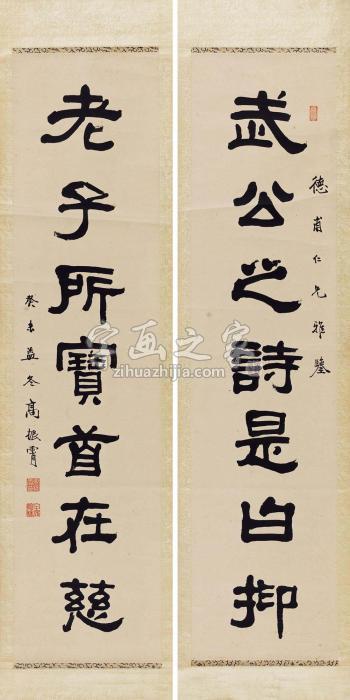 德甫仁兄雅鑒
武公之詩是曰抑
老子所寶首在慈
癸未孟冬高振霄
字画之家
zihuazhijia.com